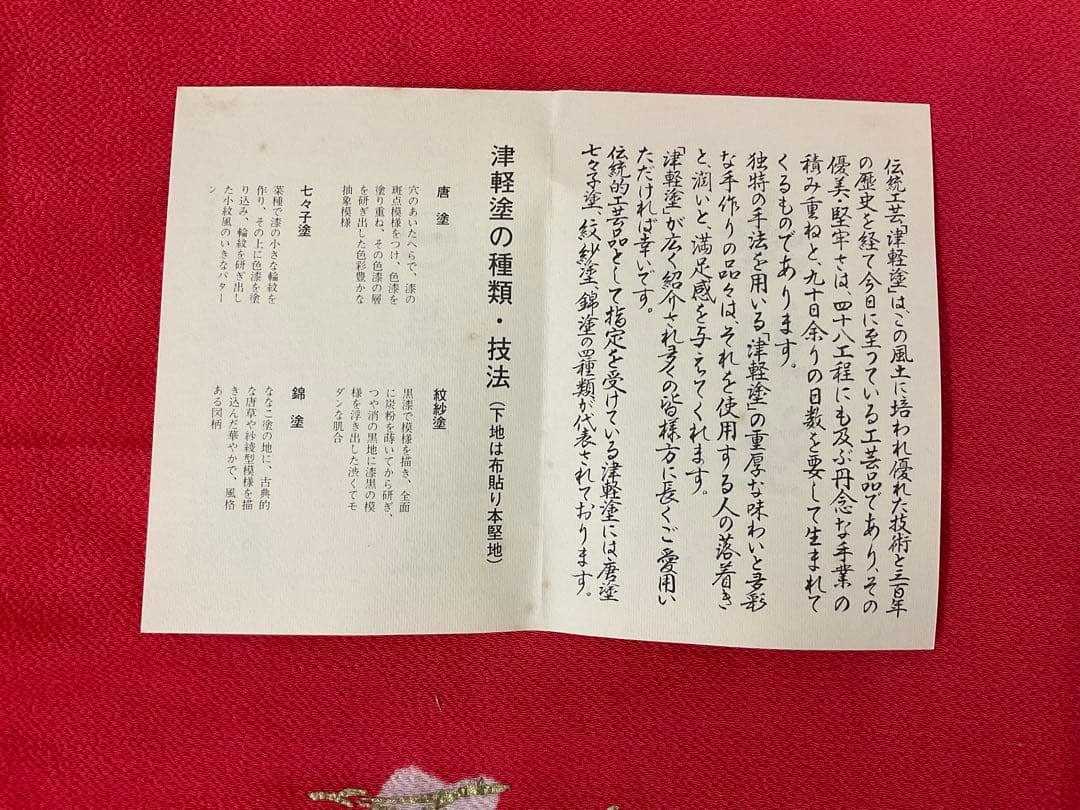 伝統工芸「津軽塗」は、この風土に培われ優れた技術と三百年
の歴史を経て今日に至っている工芸品であり、その
優美・堅牢さは、四十八工程にも及ぶ丹念な手業の
積み重ねと、九十日余りの日数を要して生まれて
くるものであります。
独特の手法を用いる「津軽塗」の重厚な味わいと多彩
な手作りの品々は、それを使用する人の落着き
と、潤いと、満足感を与えてくれます。
「津軽塗」が広く紹介され多くの皆様方に長くご愛用い
ただければ幸いです。
伝統的工芸品として指定を受けている津軽塗には唐塗
七々子塗、紋紗塗、錦塗の四種類が代表されております。
津軽塗の種類・技法（下地は布貼り本堅地）
唐塗
穴のあいたへらで、漆の
斑点模様をつけ、色漆を
塗り重ね、その色漆の層
を研ぎ出した色彩豊かな
抽象模様
紋紗塗
黒漆で模様を描き、全面
に炭粉を蒔いてから研ぎ、
つや消の黒地に漆黒の模
様を浮き出した渋くてモ
ダンな肌合
七々子塗
菜種で漆の小さな輪紋を
作り、その上に色漆を塗
り込み、輪紋を研ぎ出し
た小紋風のいきなパター
ン
錦塗
ななこ塗の地に、古典的
な唐草や紗綾型模様を描
き込んだ華やかで、風格
ある図柄